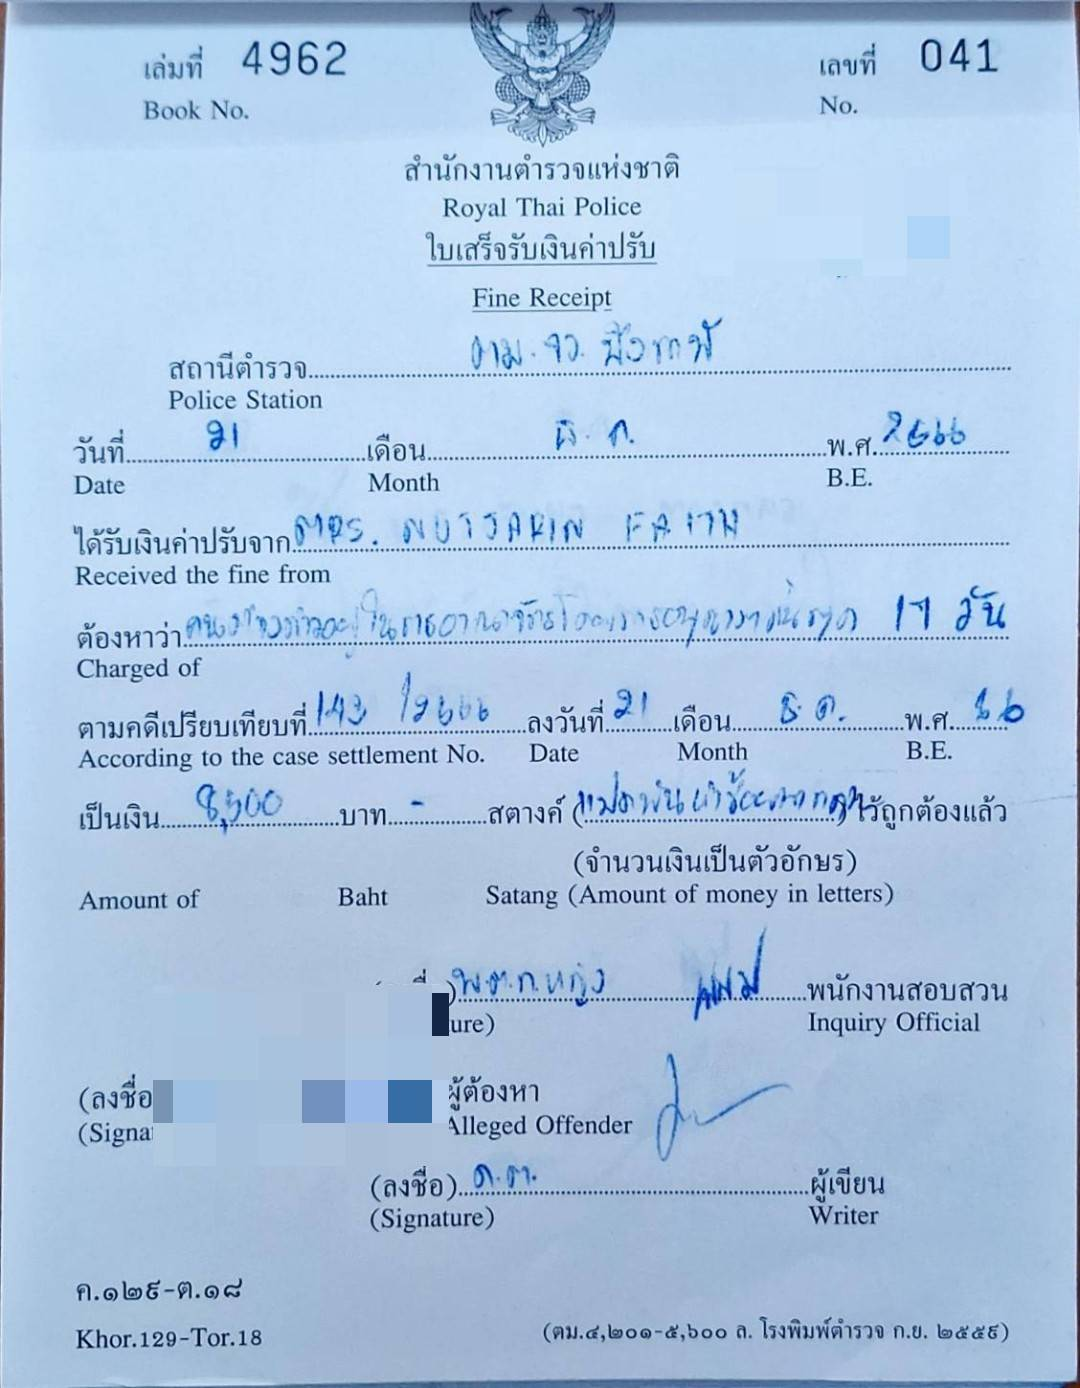 เล่มที่ 4962 เลขที่ 041
Book No. No.
สำนักงานตำรวจแห่งชาติ
Royal Thai Police
ใบเสร็จรับเงินค่าปรับ
Fine Receipt
สถานีตำรวจ ตม.จว.
Police Station
วันที่ 21 เดือน ธ.ค. พ.ศ. 2566
Date Month B.E.
ได้รับเงินค่าปรับจาก MRS.
Received the fine from
ต้องหาว่า คนต่างด้าวอยู่ในราชอาณาจักรโดยการอนุญาตสิ้นสุด 17 วัน
Charged of
ตามคดีเปรียบเทียบที่ 143/2566 ลงวันที่ 21 เดือน ธ.ค. พ.ศ. 66
According to the case settlement No. Date Month B.E.
เป็นเงิน 8,500 บาท - สตางค์ (แปดพันห้าร้อยบาทถ้วน) ไว้ถูกต้องแล้ว
(จำนวนเงินเป็นตัวอักษร)
Amount of Baht Satang (Amount of money in letters)
พ.ต.ท.หญิง พนักงานสอบสวน
ure) Inquiry Official
(ลงชื่อ ผู้ต้องหา
(Signa Alleged Offender
(ลงชื่อ) ด.ต. ผู้เขียน
(Signature) Writer
ค.๑๒๙-ต.๑๘
Khor.129-Tor.18 (ตม.๔,๒๐๑-๕,๖๐๐ ล. โรงพิมพ์ตำรวจ ก.ย. ๒๕๕๙)